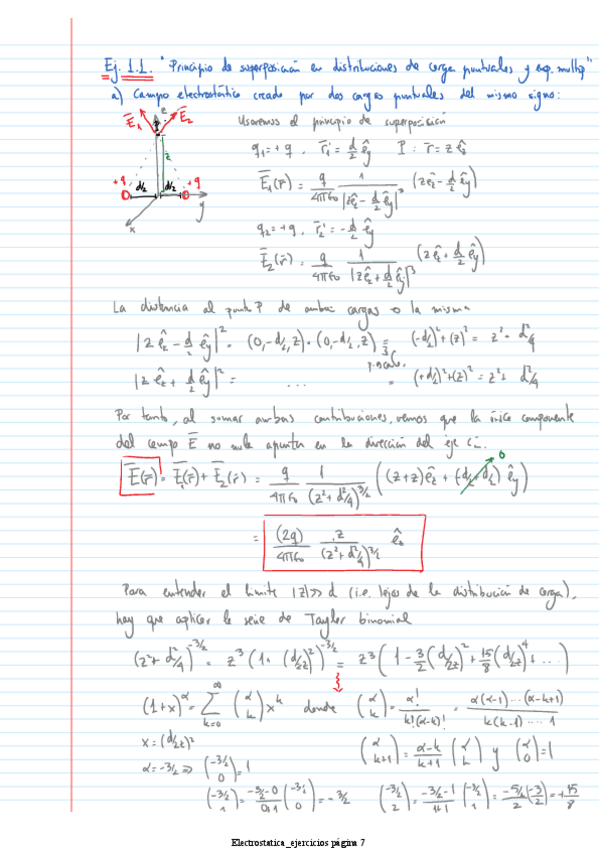 Ej. 1.1. "Principio de superposición en distribuciones de carga puntuales y exp. multip"
a) Campo electrostático creado por dos cargas puntuales del mismo signo:
Usaremos el principio de superposición
E̅₁ E̅₂ z P z
+q d/2 d/2 +q
x y
q₁=+q , r̅₁' = d/2 ê_y P : r̅ = z ê_z
E̅₁(r̅) = q/4πε₀ 1/|zê_z - d/2 ê_y|³ (zê_z - d/2 ê_y)
q₂=+q , r̅₂' = -d/2 ê_y
E̅₂(r̅) = q/4πε₀ 1/|zê_z + d/2 ê_y|³ (zê_z + d/2 ê_y)
La distancia al punto P de ambas cargas es la misma
|zê_z - d/2 ê_y|² = (0,-d/2,z)·(0,-d/2,z) = (-d/2)²+(z)² = z²+d²/4
p. escalar
|zê_z + d/2 ê_y|² = ... = (+d/2)²+(z)² = z²+d²/4
Por tanto, al sumar ambas contribuciones, vemos que la única componente
del campo E̅ no nula apunta en la dirección del eje
E̅(r̅) = E̅₁(r̅) + E̅₂(r̅) = q/4πε₀ 1/(z²+d²/4)^3/2 ((z+z)ê_z + (-d/2+d/2) ê_y) 0
= (2q)/4πε₀ z/(z²+d²/4)^3/2 ê_z
Para entender el límite |z|>>d (i.e. lejos de la distribución de carga),
hay que aplicar la serie de Taylor binomial
(z²+d²/4)^-3/2 = z³(1+(d/2z)²)^-3/2 = z³(1 - 3/2(d/2z)² + 15/8(d/2z)⁴ + ...)
(1+x)^α = ∑_{k=0}^∞ (α k) x^k donde (α k) = α!/k!(α-k)! = α(α-1)...(α-k+1)/k(k-1)....1
x=(d/2z)² (α k+1) = α-k/k+1 (α k) y (α 0)=1
α=-3/2 => (-3/2 0)=1
(-3/2 1) = -3/2-0/0+1 (-3/2 0) = -3/2 (-3/2 2) = -3/2-1/1+1 (-3/2 1) = -5/2/2 (-3/2) = +15/8
Electrostatica_ejercicios página 7